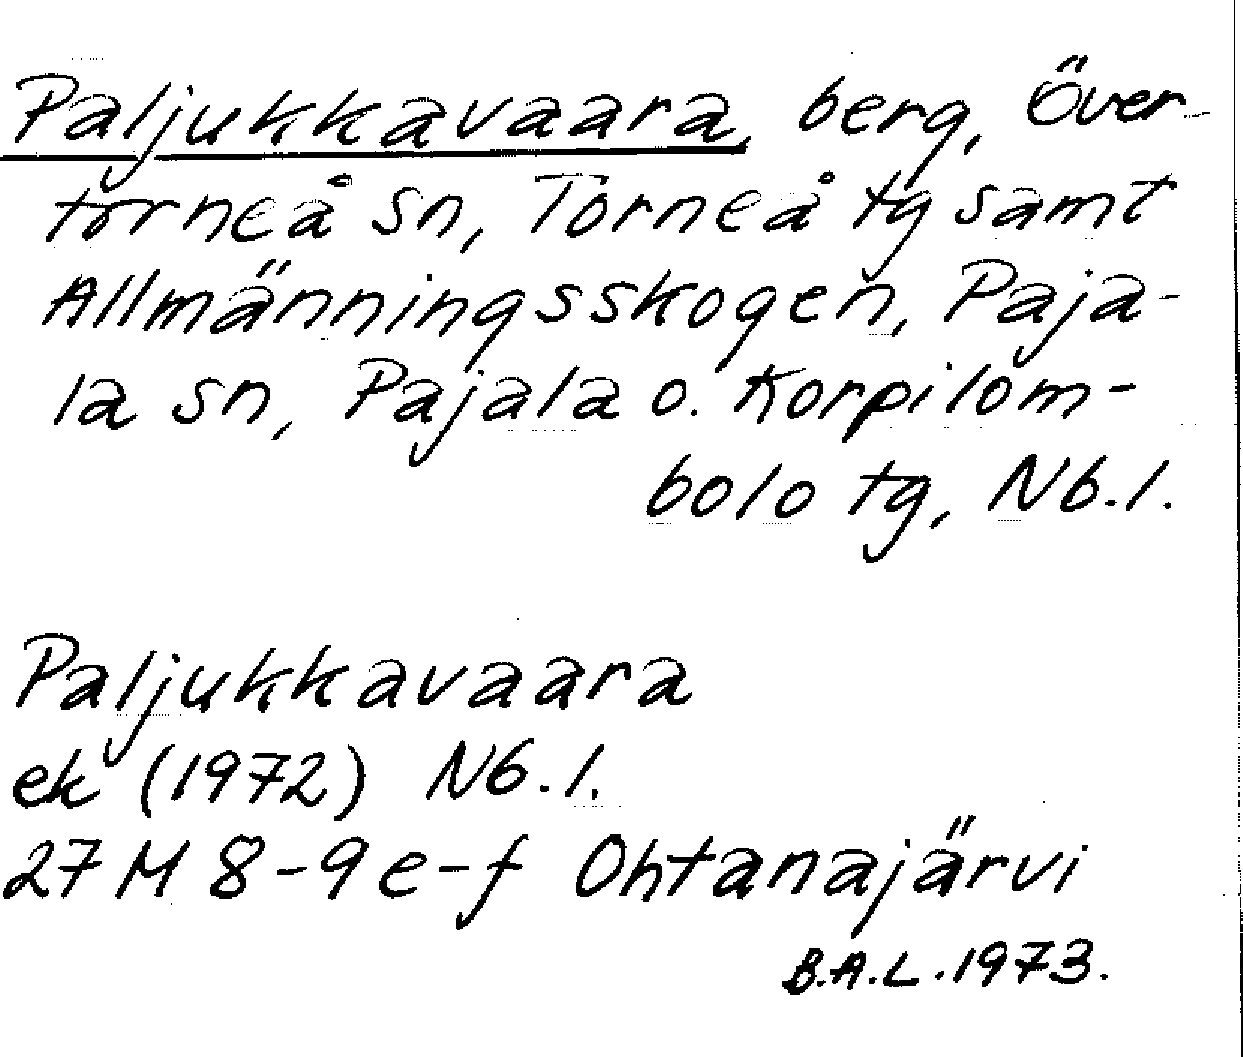 Paljukkavaara, berg, Över-
torneå sn, Torneå tg samt
Allmänningsskogen, Paja-
la sn, Pajala o. Korpilom-
bolo tg, Nb.l.
Paljukkavaara
ek (1972) Nb.l.
27 M 8-9 e-f Ohtanajärvi
B.A.L. 1973.